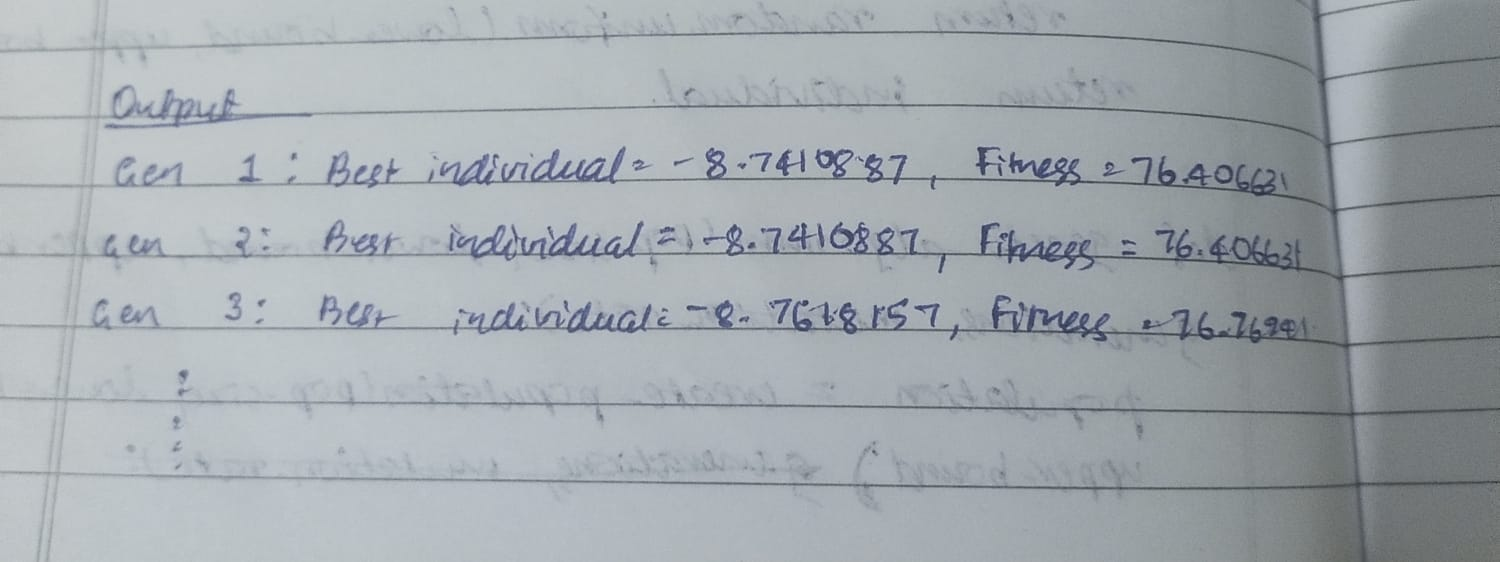 Output
Gen 1 : Best individual = -8.7410887, Fitness = 76.406631
Gen 2: Best individual = -8.7410887, Fitness = 76.406631
Gen 3: Best individual = -8.7618157, Fitness =